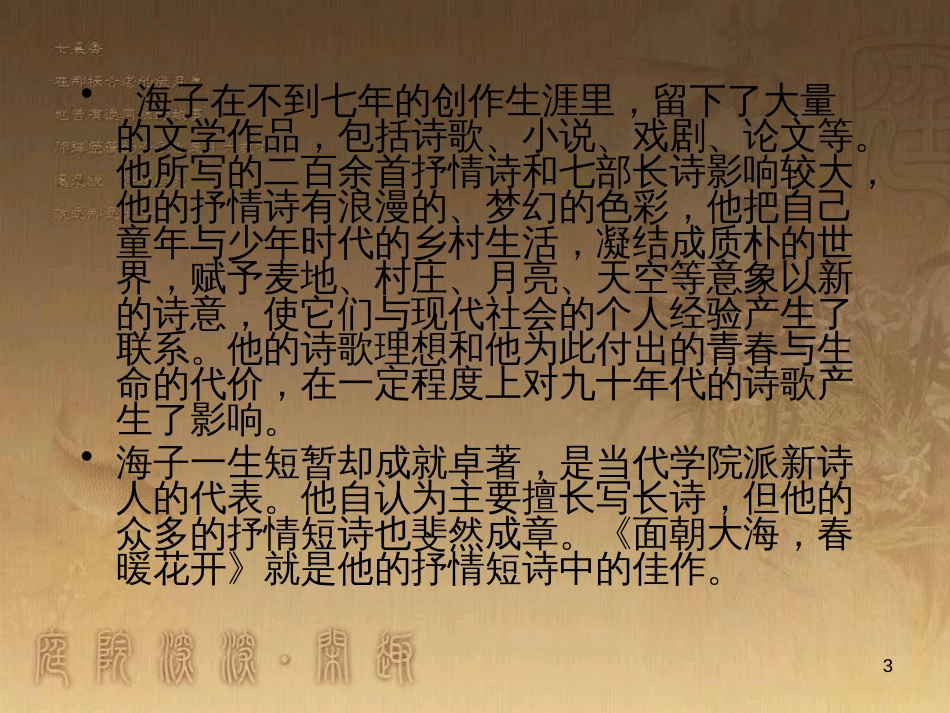 • 海子在不到七年的创作生涯里，留下了大量
的文学作品，包括诗歌、小说、戏剧、论文等。
他所写的二百余首抒情诗和七部长诗影响较大，
他的抒情诗有浪漫的、梦幻的色彩，他把自己
童年与少年时代的乡村生活，凝结成质朴的世
界，赋予麦地、村庄、月亮、天空等意象以新
的诗意，使它们与现代社会的个人经验产生了
联系。他的诗歌理想和他为此付出的青春与生
命的代价，在一定程度上对九十年代的诗歌产
生了影响。
• 海子一生短暂却成就卓著，是当代学院派新诗
人的代表。他自认为主要擅长写长诗，但他的
众多的抒情短诗也斐然成章。《面朝大海，春
暖花开》就是他的抒情短诗中的佳作。
庭院深深·闲趣
3